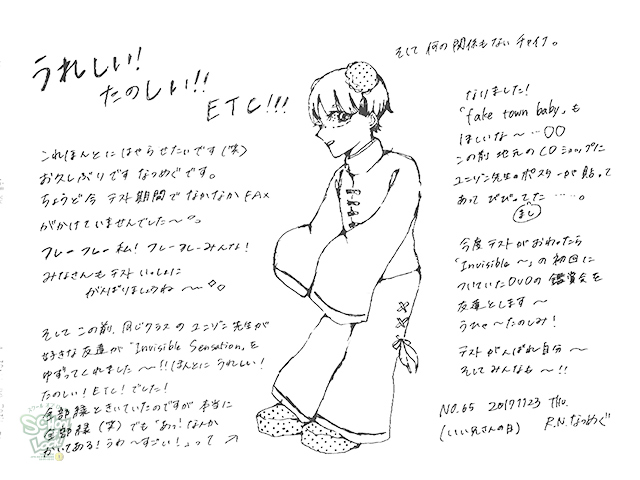 うれしい!
たのしい!!
ETC!!!
これほんとにはやらせたいです(笑)
お久しぶりです なつめぐです。
ちょうど今 テスト期間で なかなか FAX
がかけていませんでした〜。
フレーフレー私! フレーフレーみんな!
みなさんも テスト いっしょに
がんばりましょうね〜
そして この前、同じクラスの ユニゾン先生が
好きな友達が「Invisible Sensation」を
ゆずってくれました〜!! ほんとに うれしい!
たのしい! ETC! でした!
全部緑ときいていたのですが 本当に
全部緑(笑) でも「あっ! なんか
かいてある! うわ〜すごい!」って
そして 何の関係もない チャイナ。
なりました!
「fake town baby」も
ほしいな〜…
この前 地元の CDショップに
ユニゾン先生のポスターが貼って
あって びびってた……。
今度テストがおわったら
「Invisible〜」の初回に
ついていたDVDの鑑賞会を
友達とします〜
うひゃ〜たのしみ!
テストがんばれ自分〜
そしてみんなも〜!!
NO.65 20171123 THU.
(いい兄さんの日) R.N.なつめぐ